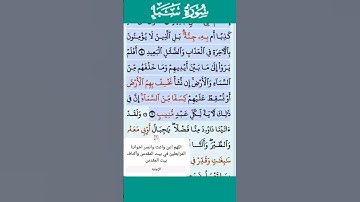 سُورَةُ سَبَإٍ
كَذِبًا أَم بِهِۦ جِنَّةٌۢ ۗ بَلِ ٱلَّذِينَ لَا يُؤْمِنُونَ
بِٱلْـَٔاخِرَةِ فِى ٱلْعَذَابِ وَٱلضَّلَـٰلِ ٱلْبَعِيدِ ٨ أَفَلَمْ
يَرَوْا۟ إِلَىٰ مَا بَيْنَ أَيْدِيهِمْ وَمَا خَلْفَهُم مِّنَ
ٱلسَّمَآءِ وَٱلْأَرْضِ ۚ إِن نَّشَأْ نَخْسِفْ بِهِمُ ٱلْأَرْضَ
أَوْ نُسْقِطْ عَلَيْهِمْ كِسَفًا مِّنَ ٱلسَّمَآءِ ۚ إِنَّ فِى
ذَٰلِكَ لَـَٔايَةً لِّكُلِّ عَبْدٍ مُّنِيبٍ ٩ وَلَقَدْ
ءَاتَيْنَا دَاوُۥدَ مِنَّا فَضْلًا ۖ يَـٰجِبَالُ أَوِّبِى مَعَهُۥ
وَٱلطَّيْرَ ۖ وَأَلَنَّا
سَـٰبِغَـٰتٍ وَقَدِّرْ فِى
اللهم اعن وثبت وانصر اخواننا
المرابطين في بيت المقدس وأكناف
بيت المقدس